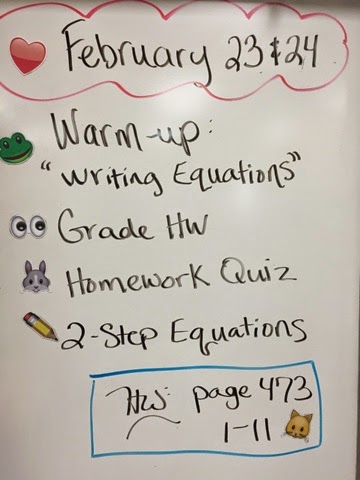 February 23 & 24
Warm-up:
"Writing Equations"
Grade HW
Homework Quiz
2-Step Equations
HW: page 473
1-11